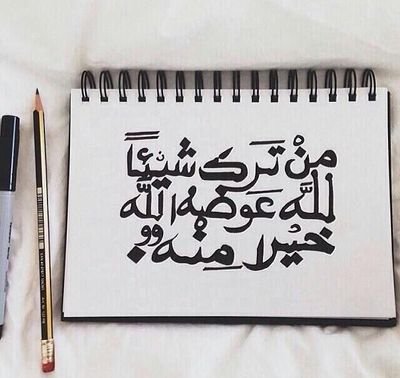 مِنْ تَرَك شيئاً
للَّه عَوضهُ اللَّه
خيْرا مِنْه